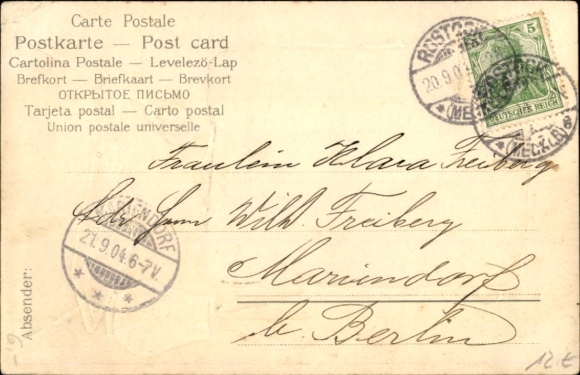 Carte Postale
Postkarte — Post card
Cartolina Postale — Levelezö-Lap
Brefkort — Briefkaart — Brevkort
ОТКРЫТОЕ ПИСЬМО
Tarjeta postal — Carto postal
Union postale universelle
ROSTOCK
20.9.04
(MECKLB)
5
DEUTSCHES REICH
ROSTOCK
(MECKLB)
Fräulein Klara Freiberg
Adr. Herrn Wilh. Freiberg
Mariendorf
b. Berlin
MARIENDORF
21.9.04.6-7V.
Absender:
12.€